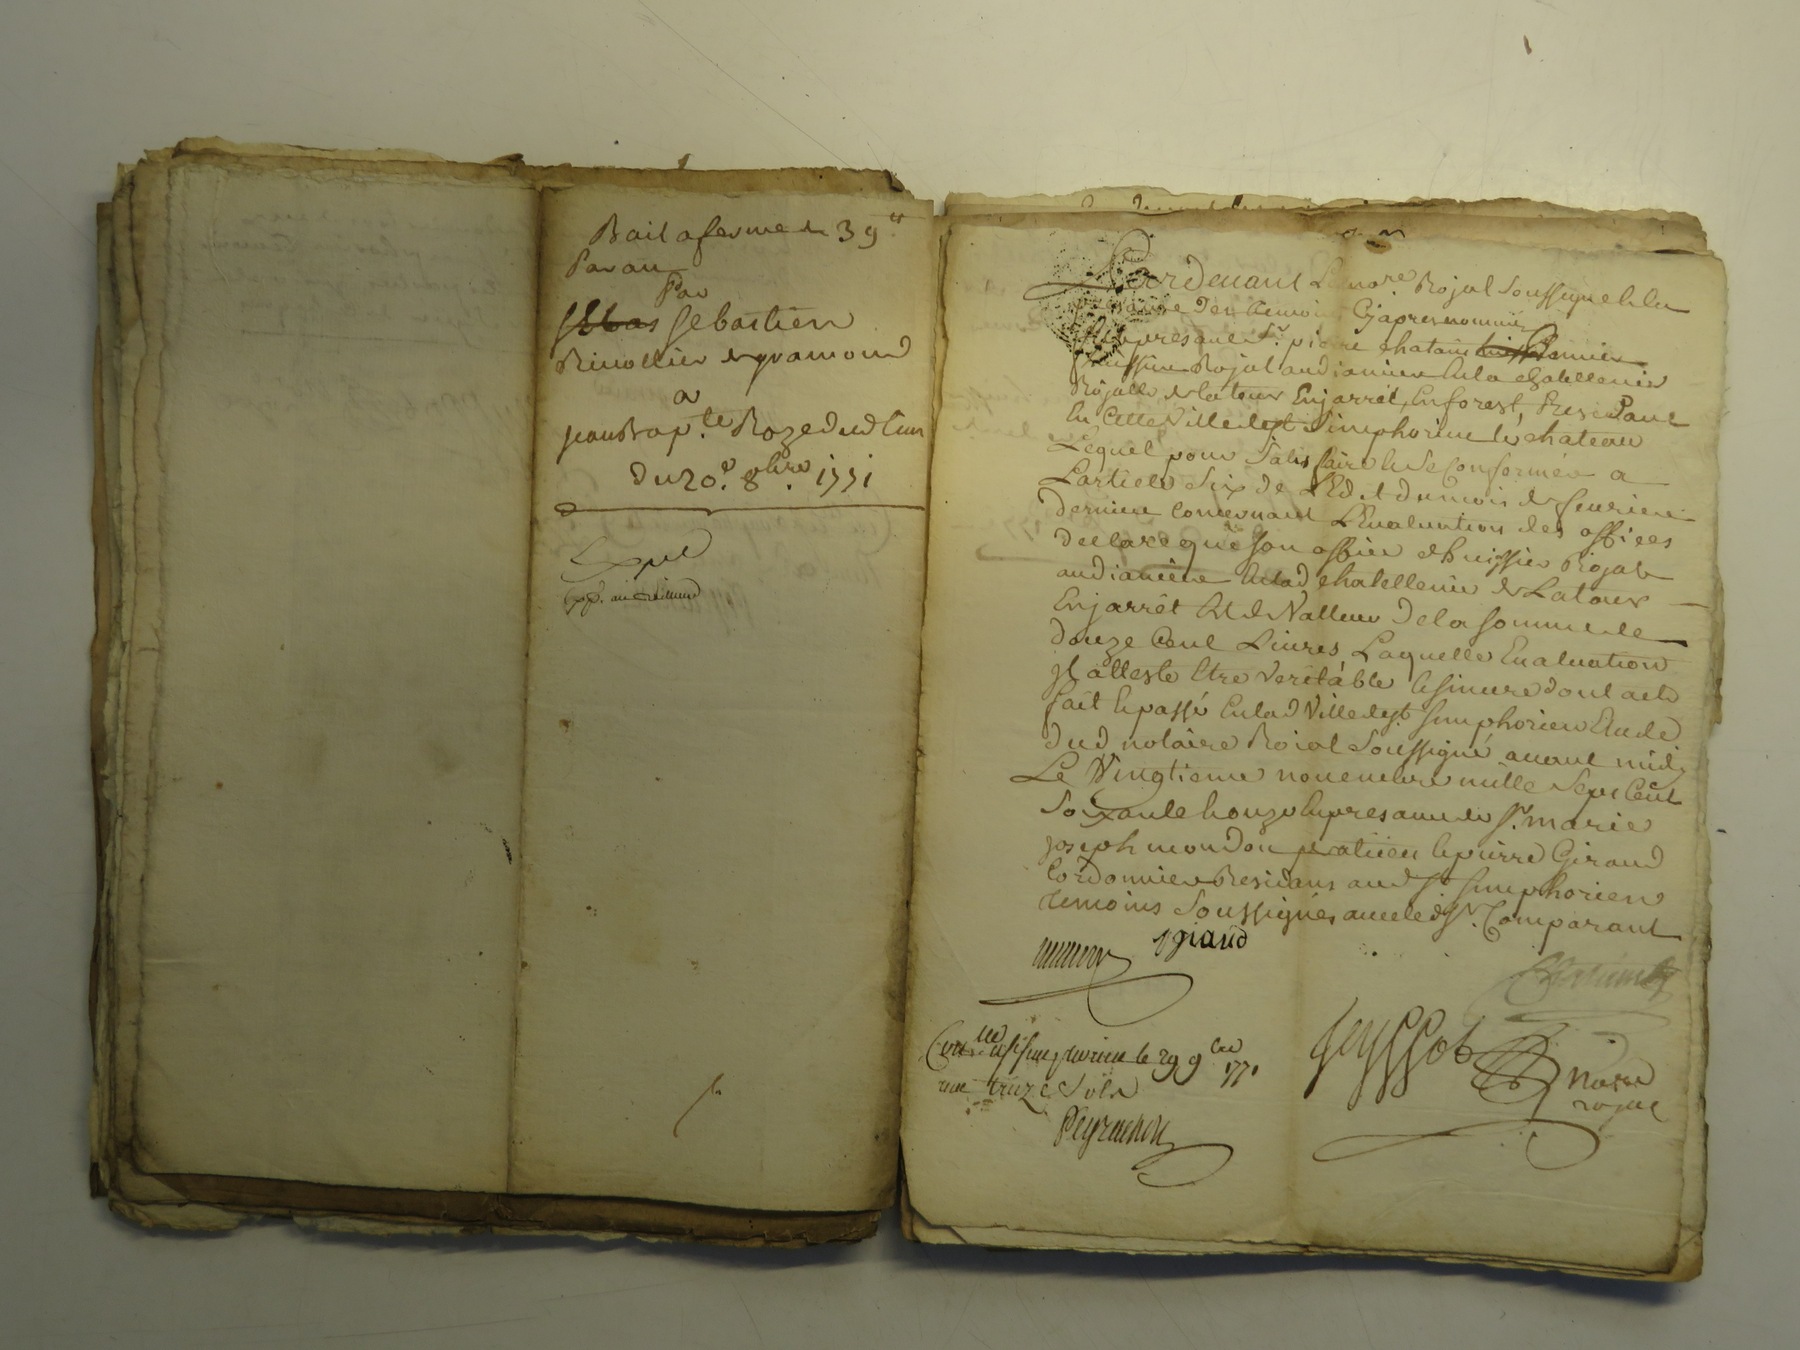 Bail a ferme de 39 tt
Par an
Par
Sebastien
Rivollier de gramond
a
jean Bap.te Roze dud lieu
du 20.e 8bre. 1771
Expé
Pardevant Le no.re Royal Soussigné &
des temoins Cy apres nommés
En presance Sr. pierre chatain premier
huissier Royal audiancier En la chatellenie
Royalle de La tour Enjarrêt, En forest, Residant
En Cette Ville de st Simphorien le chateau
Lequel pour Satisfaire & Se Conformer a
L'article Six de L'Edit du mois de feurier
dernier Concernant L'Evaluation des offices
declare que Son office d'huissier Royal
audiancier En lad chatellenie de La tour
Enjarrêt Est de Valleur De la Somme de
douze Cent Livres Laquelle Evaluation
jl atteste Etre Veritable & Sincere dont acte
fait & passé En lad Ville de st. Simphorien Etude
dud notaire Roial Soussigné avant midy
Le Vingtieme novembre mille Sept Cent
Soixante & onze En presance de Sr. marie
joseph mondon praticien & pierre Giraud
Cordonnier Residans aud St. Simphorien
temoins Soussignés avec le d Sr. Comparant
mondon pgiraud
Chatain
Con.lé a st simphorien le 29 9bre 1771
reçu treize Sols
Peyrachon
Jeyssot Notre
royal